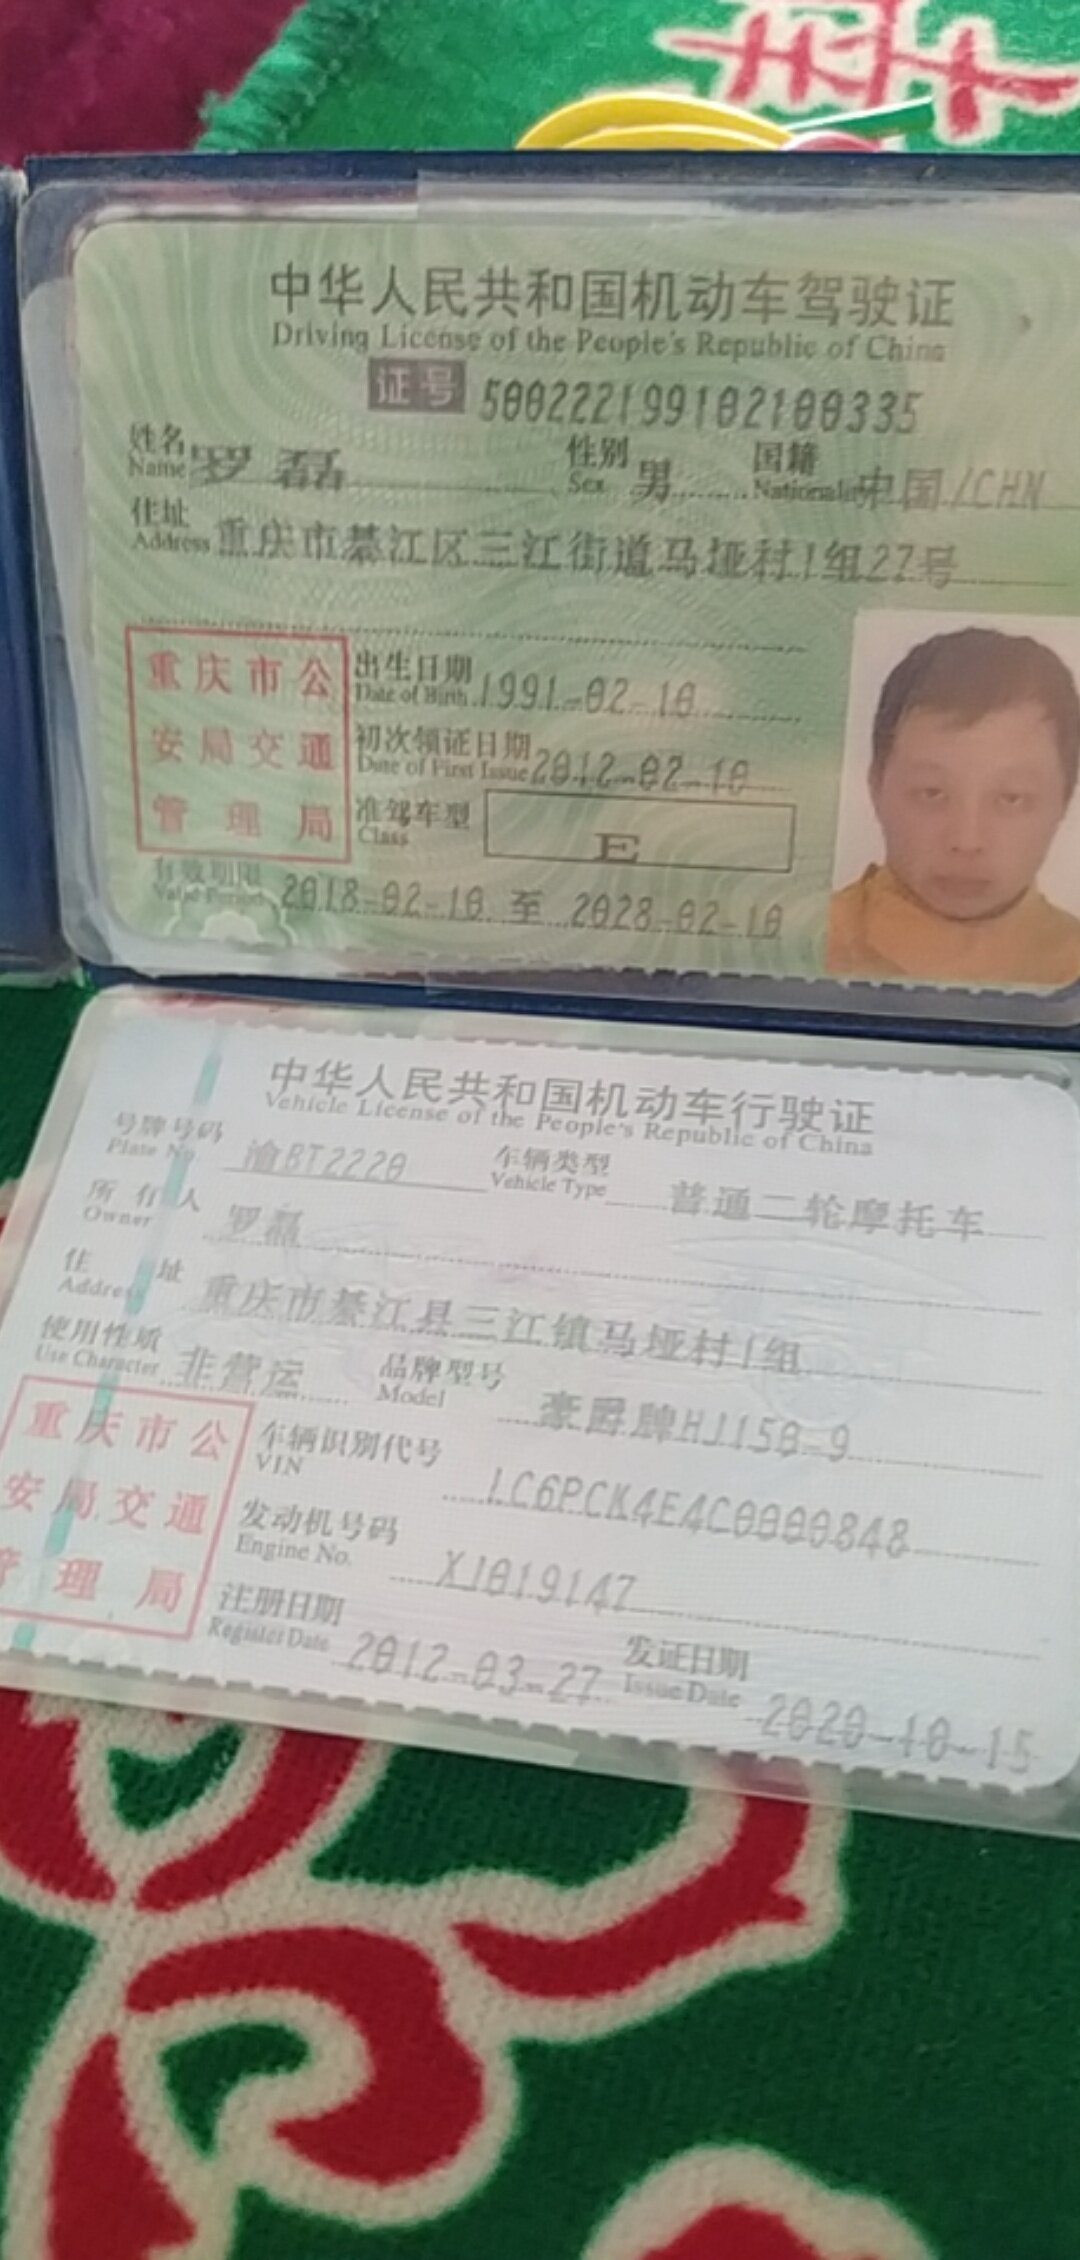 中华人民共和国机动车驾驶证
Driving License of the People's Republic of China
证号 500222199102100335
姓名 罗磊 性别 男 国籍 中国/CHN
Name Sex Nationality
住址 重庆市綦江区三江街道马垭村1组27号
Address
重庆市公安局交通管理局
出生日期 1991-02-10
Date of Birth
初次领证日期 2012-02-10
Date of First Issue
准驾车型 E
Class
有效期限 2018-02-10 至 2028-02-10
Valid Period
中华人民共和国机动车行驶证
Vehicle License of the People's Republic of China
号牌号码 渝BT2220 车辆类型 普通二轮摩托车
Plate No. Vehicle Type
所有人 罗磊
Owner
住址 重庆市綦江县三江镇马垭村1组
Address
使用性质 非营运 品牌型号 豪爵牌HJ150-9
Use Character Model
重庆市公安局交通管理局
车辆识别代号 LC6PCK4E4C0000848
VIN
发动机号码 X1019147
Engine No.
注册日期 2012-03-27 发证日期 2020-10-15
Register Date Issue Date